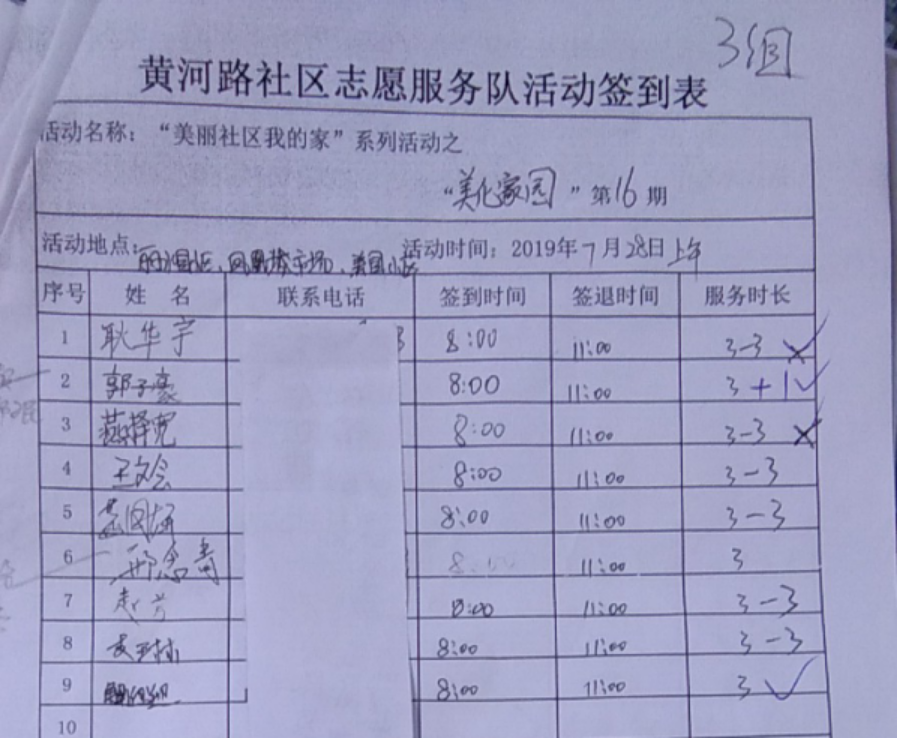 3组
黄河路社区志愿服务队活动签到表
活动名称：“美丽社区我的家”系列活动之
“美化家园”第16期
活动地点： 活动时间：2019年7月28日上午
序号 姓名 联系电话 签到时间 签退时间 服务时长
1 耿华宇 8:00 11:00 3-3 ×✓
2 郭子豪 8:00 11:00 3+1✓
3 8:00 11:00 3-3 ×
4 8:00 11:00 3-3
5 8:00 11:00 3-3
6 8:00 11:00 3
7 赵芳 8:00 11:00 3-3
8 8:00 11:00 3-3
9 8:00 11:00 3 ✓
10